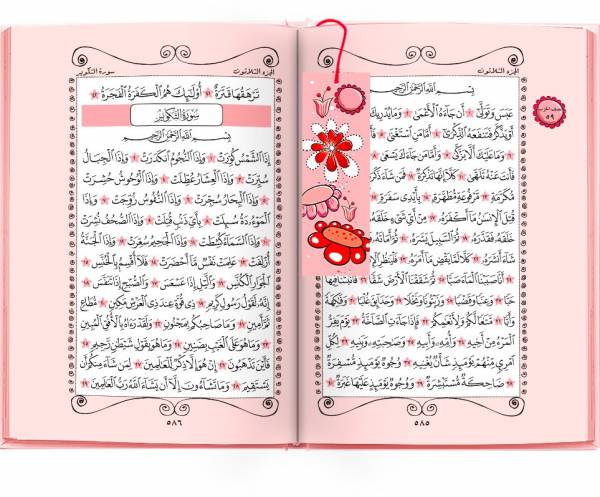 الجزء الثلاثون
بِسْمِ اللَّهِ الرَّحْمَٰنِ الرَّحِيمِ
عَبَسَ وَتَوَلَّىٰ أَن جَاءَهُ الْأَعْمَىٰ وَمَا يُدْرِيكَ
أَوْ يَذَّكَّرُ فَتَنفَعَهُ الذِّكْرَىٰ أَمَّا مَنِ اسْتَغْنَىٰ
وَمَا عَلَيْكَ أَلَّا يَزَّكَّىٰ وَأَمَّا مَن جَاءَكَ يَسْعَىٰ
فَأَنتَ عَنْهُ تَلَهَّىٰ كَلَّا إِنَّهَا تَذْكِرَةٌ فَمَن شَاءَ ذَكَرَهُ
مُّكَرَّمَةٍ مَّرْفُوعَةٍ مُّطَهَّرَةٍ بِأَيْدِي سَفَرَةٍ
قُتِلَ الْإِنسَانُ مَا أَكْفَرَهُ مِنْ أَيِّ شَيْءٍ
خَلَقَهُ فَقَدَّرَهُ ثُمَّ السَّبِيلَ يَسَّرَهُ ثُمَّ أَمَاتَهُ
أَمَرَهُ فَلْيَنظُرِ
أَنَّا صَبَبْنَا الْمَاءَ صَبًّا ثُمَّ شَقَقْنَا الْأَرْضَ شَقًّا فَأَنبَتْنَا فِيهَا
حَبًّا وَعِنَبًا وَقَضْبًا وَزَيْتُونًا وَنَخْلًا وَحَدَائِقَ غُلْبًا وَفَاكِهَةً
وَأَبًّا مَّتَاعًا لَّكُمْ وَلِأَنْعَامِكُمْ فَإِذَا جَاءَتِ الصَّاخَّةُ يَوْمَ يَفِرُّ
الْمَرْءُ مِنْ أَخِيهِ وَأُمِّهِ وَأَبِيهِ وَصَاحِبَتِهِ وَبَنِيهِ لِكُلِّ
امْرِئٍ مِّنْهُمْ يَوْمَئِذٍ شَأْنٌ يُغْنِيهِ وُجُوهٌ يَوْمَئِذٍ مُّسْفِرَةٌ
ضَاحِكَةٌ مُّسْتَبْشِرَةٌ وَوُجُوهٌ يَوْمَئِذٍ عَلَيْهَا غَبَرَةٌ
٥٨٥
نصف الحزب
٥٩
الجزء الثلاثون
سورة التكوير
تَرْهَقُهَا قَتَرَةٌ أُولَٰئِكَ هُمُ الْكَفَرَةُ الْفَجَرَةُ
سُورَةُ التَّكْوِيرِ
بِسْمِ اللَّهِ الرَّحْمَٰنِ الرَّحِيمِ
إِذَا الشَّمْسُ كُوِّرَتْ وَإِذَا النُّجُومُ انكَدَرَتْ وَإِذَا الْجِبَالُ
سُيِّرَتْ وَإِذَا الْعِشَارُ عُطِّلَتْ وَإِذَا الْوُحُوشُ حُشِرَتْ
وَإِذَا الْبِحَارُ سُجِّرَتْ وَإِذَا النُّفُوسُ زُوِّجَتْ وَإِذَا
الْمَوْءُودَةُ سُئِلَتْ بِأَيِّ ذَنبٍ قُتِلَتْ وَإِذَا الصُّحُفُ نُشِرَتْ
وَإِذَا السَّمَاءُ كُشِطَتْ وَإِذَا الْجَحِيمُ سُعِّرَتْ وَإِذَا الْجَنَّةُ
أُزْلِفَتْ عَلِمَتْ نَفْسٌ مَّا أَحْضَرَتْ فَلَا أُقْسِمُ بِالْخُنَّسِ
الْجَوَارِ الْكُنَّسِ وَاللَّيْلِ إِذَا عَسْعَسَ وَالصُّبْحِ إِذَا تَنَفَّسَ
إِنَّهُ لَقَوْلُ رَسُولٍ كَرِيمٍ ذِي قُوَّةٍ عِندَ ذِي الْعَرْشِ مَكِينٍ مُّطَاعٍ
ثَمَّ أَمِينٍ وَمَا صَاحِبُكُم بِمَجْنُونٍ وَلَقَدْ رَآهُ بِالْأُفُقِ الْمُبِينِ
وَمَا هُوَ عَلَى الْغَيْبِ بِضَنِينٍ وَمَا هُوَ بِقَوْلِ شَيْطَانٍ رَّجِيمٍ
فَأَيْنَ تَذْهَبُونَ إِنْ هُوَ إِلَّا ذِكْرٌ لِّلْعَالَمِينَ لِمَن شَاءَ مِنكُمْ أَن
يَسْتَقِيمَ وَمَا تَشَاءُونَ إِلَّا أَن يَشَاءَ اللَّهُ رَبُّ الْعَالَمِينَ
٥٨٦